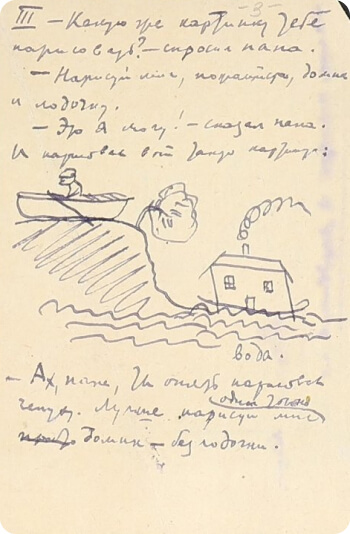 -3-
III — Какую же картинку тебе
нарисовать? — спросил папа.
— Нарисуй мне, пожалуйста, домик
и лодочку.
— Это я могу! — сказал папа.
И нарисовал вот такую картинку:
вода.
— Ах, папа, ты опять нарисовал
чепуху. Лучше нарисуй мне
один только
домик — без лодочки.